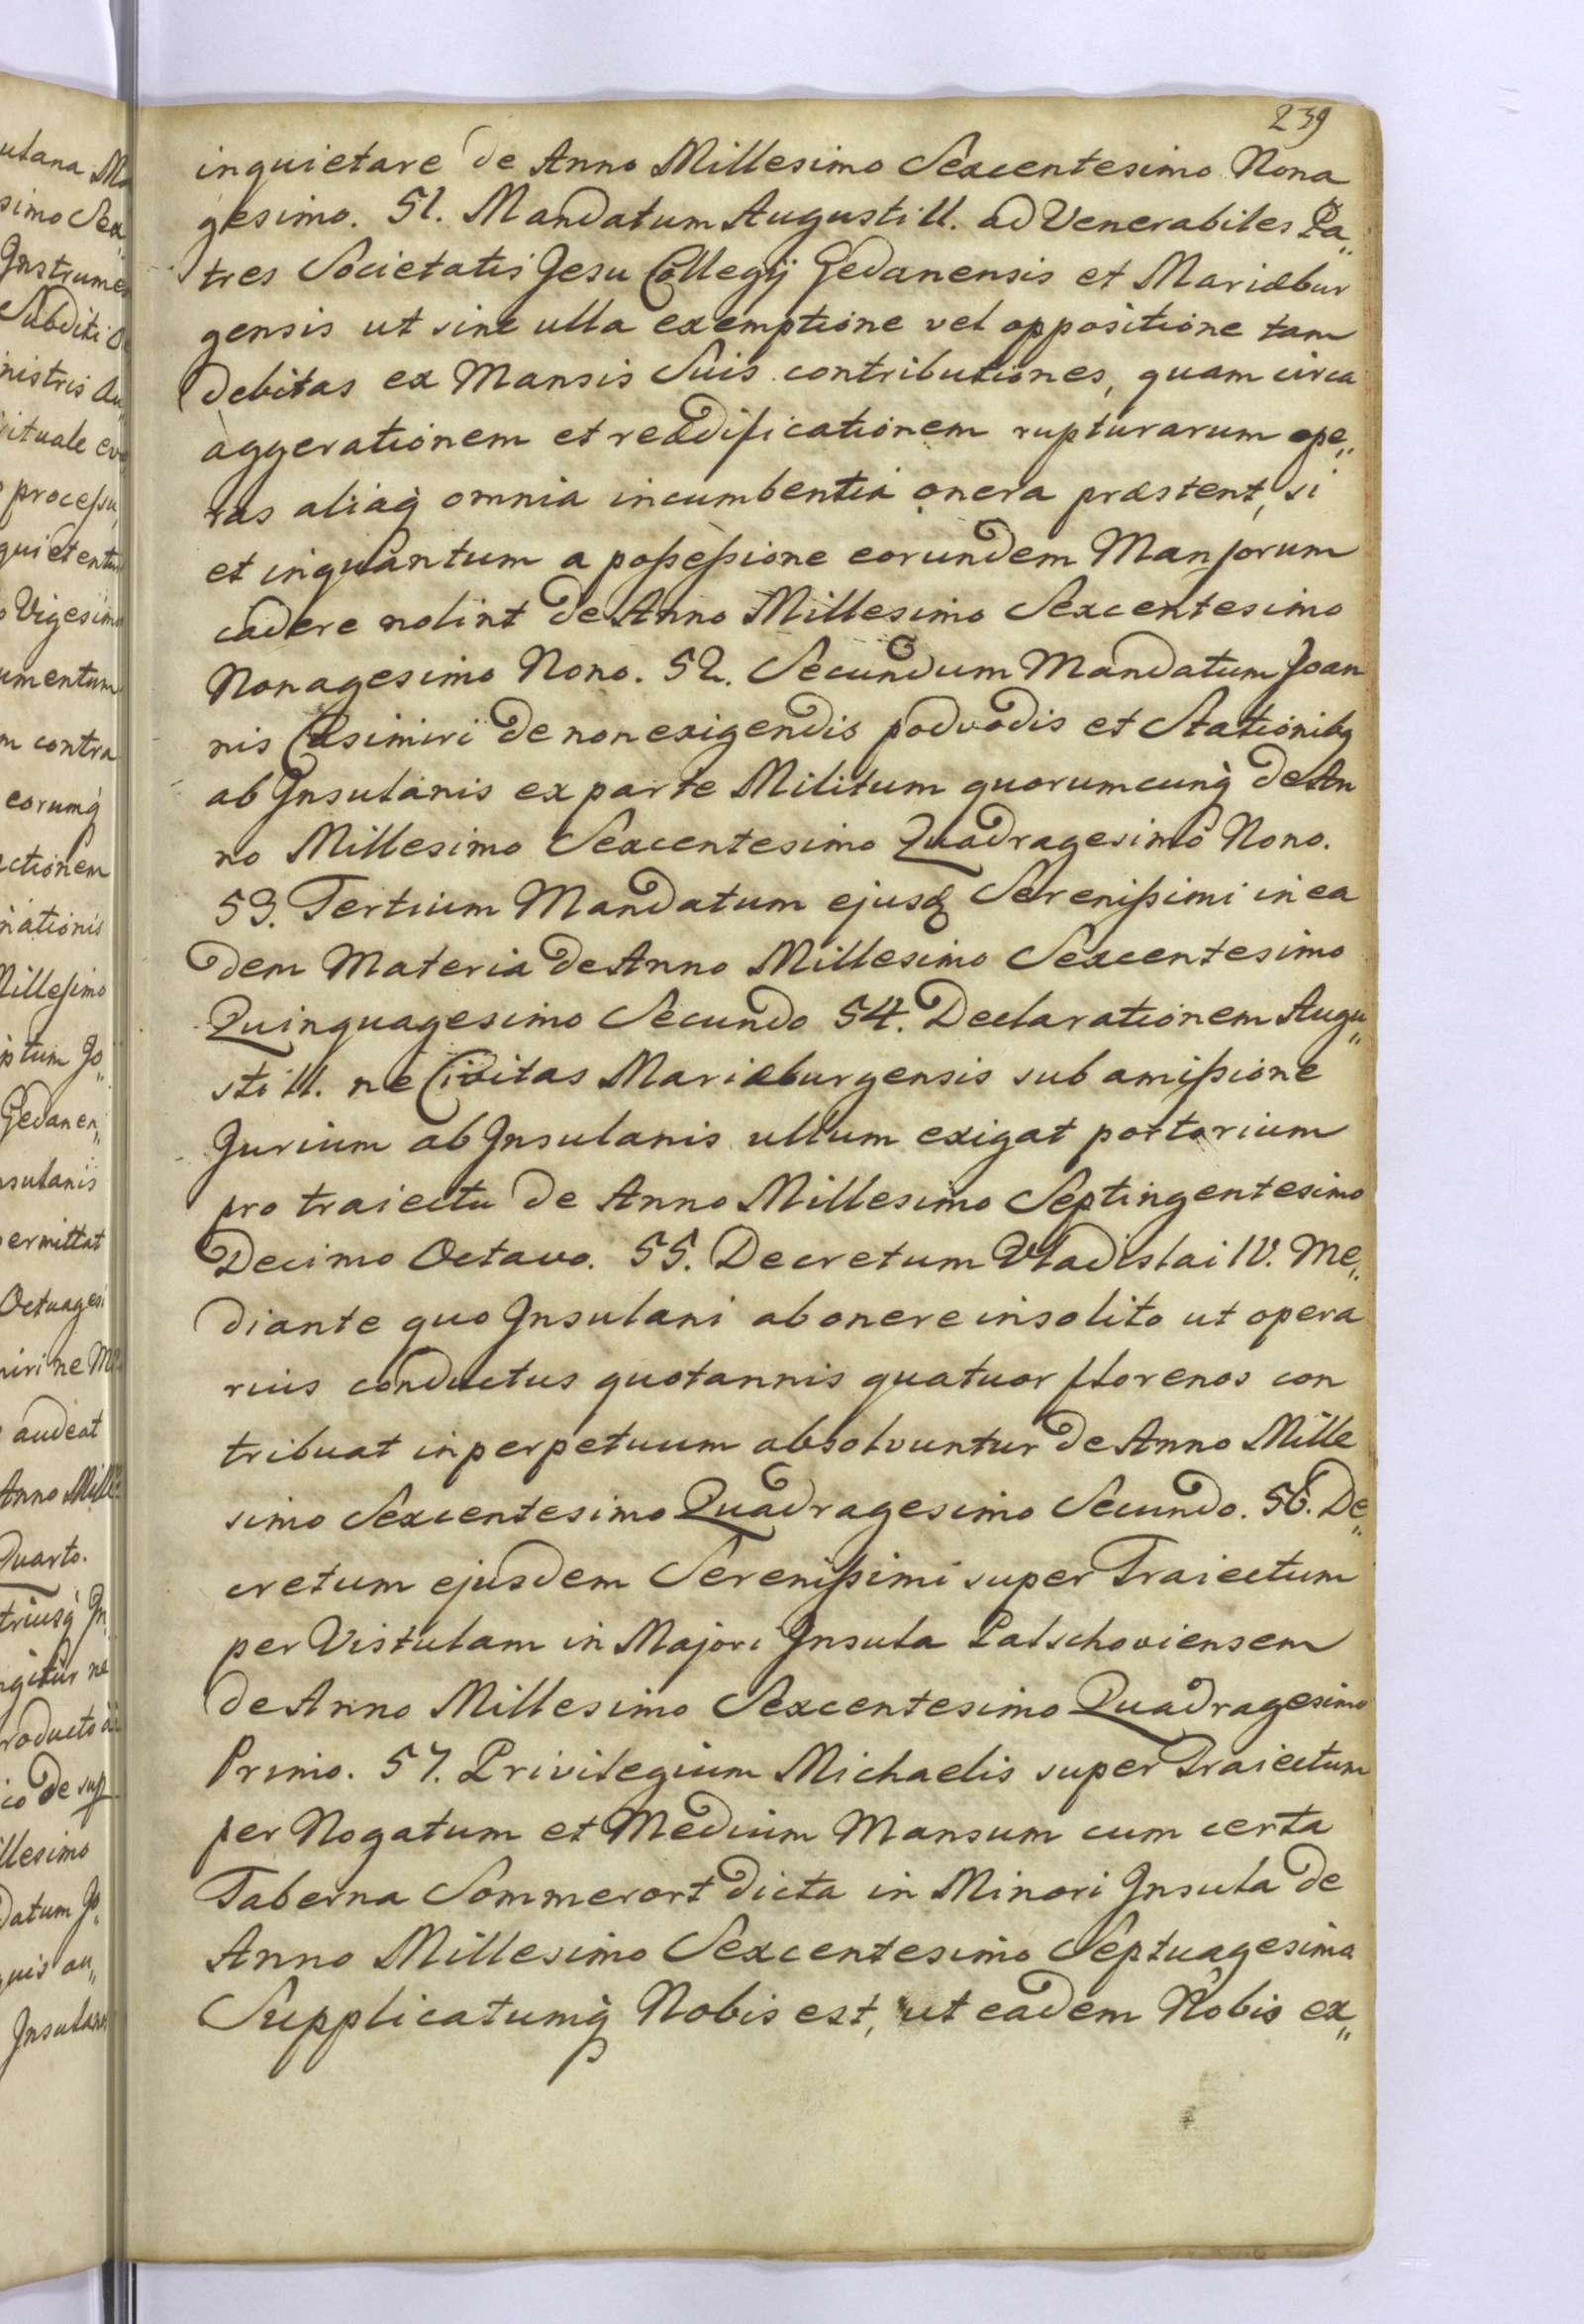 239
inquietare de Anno Millesimo Sexcentesimo Nona
gesimo. 51. Mandatum Augusti II. ad Venerabiles Pa„
tres Societatis Jesu Collegij Gedanensis et Mariæbur
gensis ut sine ulla exemptione vel oppositione tam
debitas ex Mansis Suis contributiones, quam circa
aggerationem et reædificationem rupturarum ope„
ras aliaq̀ omnia incumbentia onera præstent, si
et inquantum a poßeßione eorundem Mansorum
cadere nolint de Anno Millesimo Sexcentesimo
Nonagesimo Nono. 52. Secundum Mandatum Joan
nis Casimiri de non exigendis podvodis et Stationibq
ab Insulanis ex parte Militum quorumcunq̀ de An
no Millesimo Sexcentesimo Quadragesimo Nono.
53. Tertium Mandatum ejusd Serenißimi in ea
dem Materia de Anno Millesimo Sexcentesimo
Quinquagesimo Secundo 54. Declarationem Augu„
sti II. ne Civitas Mariæburgensis sub amißione
Jurium ab Insulanis ullum exigat portorium
pro traiectu de Anno Millesimo Septingentesimo
Decimo Octavo. 55. Decretum Vladislai IV. Me„
diante quo Insulani ab onere insolito ut opera
rius conductus quotannis quatuor florenos con
tribuat in perpetuum absolvuntur de Anno Mille
simo Sexcentesimo Quadragesimo Secundo. 56. De„
cretum ejusdem Serenißimi super Traiectum
per Vistulam in Majori Insula Palschoviensem
de Anno Millesimo Sexcentesimo Quadragesimo
Primo. 57. Privilegium Michaelis super Traiectum
per Nogatum et Medium Mansum cum certa
Taberna Sommerort dicta in Minori Insula de
Anno Millesimo Sexcentesimo Septuagesimo
Supplicatumq̀ Nobis est, ut eadem Nobis ex„